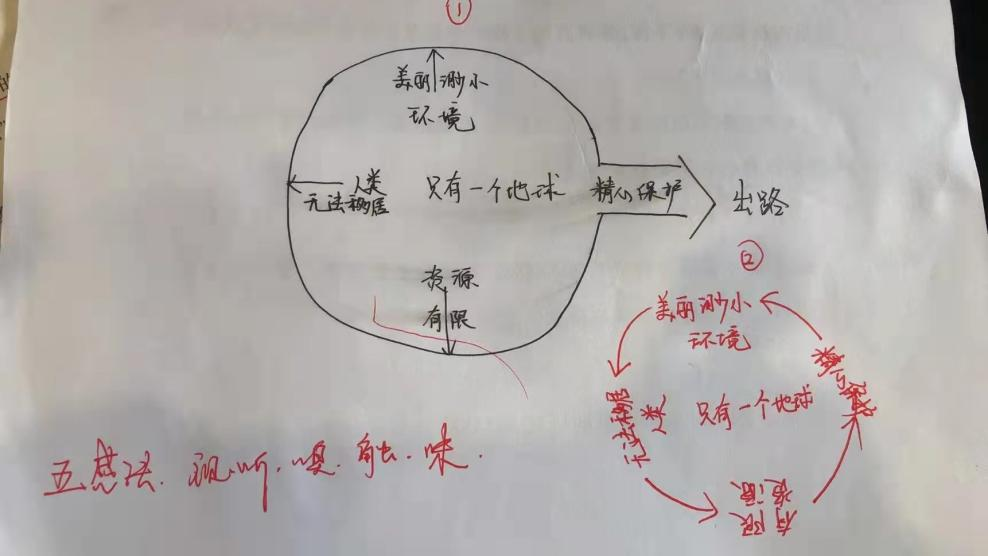 ①
美丽渺小
环境
人类
无法移居
只有一个地球
精心保护
出路
资源
有限
②
美丽渺小
环境
人类
无法移居
只有一个地球
精心保护
资源
有限
五感法. 视. 听. 嗅. 触. 味.